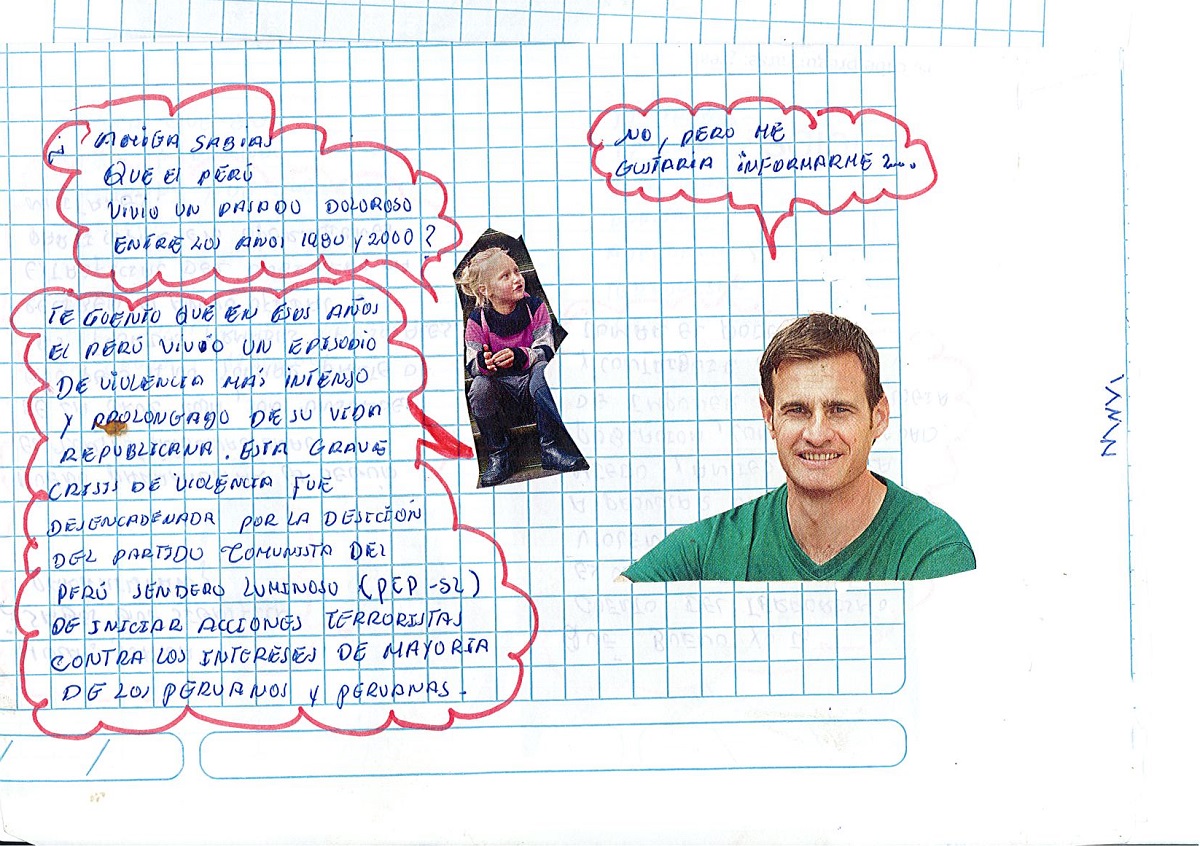 ¿ AMIGA SABIAS
QUE El PERÚ
VIVIO UN PASADO DOLOROSO
ENTRE LOS AÑOS 1980 Y 2000?
NO, PERO ME
GUSTARIA INFORMARME
TE CUENTO QUE EN ESOS AÑOS
EL PERÚ VIVIÓ UN EPISODIO
DE VIOLENCIA MÁS INTENSO
Y PROLONGADO DE SU VIDA
REPUBLICANA. ESTA GRAVE
CRISIS DE VIOLENCIA FUE
DESENCADENADA POR LA DESICIÓN
DEL PARTIDO COMUNISTA DEL
PERÚ SENDERO LUMINOSO (PCP-SL)
DE INICIAR ACCIONES TERRORISTAS
CONTRA LOS INTERESES DE MAYORIA
DE LOS PERUANOS Y PERUANAS.